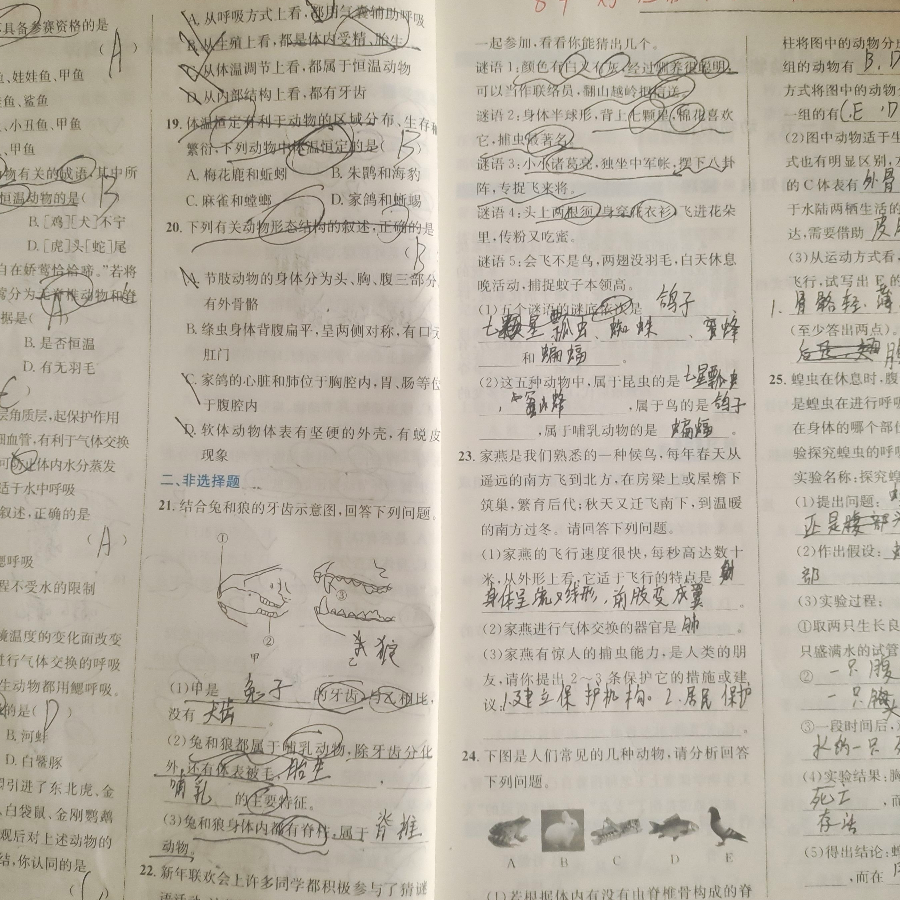 不具备参赛资格的是
A
鱼、娃娃鱼、甲鱼
鱼、鲨鱼
、小丑鱼、甲鱼
、甲鱼
物有关的成语,其中所
恒温动物的是( B
B.[鸡][犬]不宁
D.[虎]头[蛇]尾
自在娇莺恰恰啼。”若将
莺分为无脊椎动物和脊
据是( A )
B.是否恒温
D.有无羽毛
层角质层,起保护作用
细血管,有利于气体交换
可防止体内水分蒸发
适于水中呼吸
叙述,正确的是
( A )
鳃呼吸
程不受水的限制
境温度的变化而改变
进行气体交换的呼吸
生动物都用鳃呼吸。
的是( D )
B.河蚌
D.白鳘豚
里引进了东北虎、金
、白袋鼠、金刚鹦鹉
观后对上述动物的
结,你认同的是
A.从呼吸方式上看,都用气囊辅助呼吸
B.从生殖上看,都是体内受精、胎生
C.从体温调节上看,都属于恒温动物
D.从内部结构上看,都有牙齿
19.体温恒定有利于动物的区域分布、生存和
繁衍,下列动物中体温恒定的是( B )
A.梅花鹿和蚯蚓 B.朱鹮和海豹
C.麻雀和螳螂 D.家鸽和蜥蜴
20.下列有关动物形态结构的叙述,正确的是
( B
A.节肢动物的身体分为头、胸、腹三部分,
有外骨骼
B.绦虫身体背腹扁平,呈两侧对称,有口无
肛门
C.家鸽的心脏和肺位于胸腔内,胃、肠等位
于腹腔内
D.软体动物体表有坚硬的外壳,有蜕皮
现象
二、非选择题
21.结合兔和狼的牙齿示意图,回答下列问题。
①
②
③
甲
乙
狼
(1)甲是 兔子 的牙齿,与乙相比,
没有 犬齿 。
(2)兔和狼都属于哺乳动物,除牙齿分化
外,还有体表被毛、 胎生 、
哺乳 的主要特征。
(3)兔和狼身体内都有脊柱,属于 脊椎
动物。
22.新年联欢会上许多同学都积极参与了猜谜
一起参加,看看你能猜出几个。
谜语1:颜色有白又有灰,经过驯养很聪明,
可以当作联络员,翻山越岭把信送。
谜语2:身体半球形,背上七颗星,棉花喜欢
它,捕虫最著名。
谜语3:小小诸葛亮,独坐中军帐,摆下八卦
阵,专捉飞来将。
谜语4:头上两根须,身穿花衣衫,飞进花朵
里,传粉又吃蜜。
谜语5:会飞不是鸟,两翅没羽毛,白天休息
晚活动,捕捉蚊子本领高。
(1)五个谜语的谜底依次是 鸽子
七颗星瓢虫、蜘蛛、蜜蜂
和 蝙蝠 。
(2)这五种动物中,属于昆虫的是七星瓢虫
,蜜蜂 ,属于鸟的是 鸽子
,属于哺乳动物的是 蝙蝠 。
23.家燕是我们熟悉的一种候鸟,每年春天从
遥远的南方飞到北方,在房梁上或屋檐下
筑巢,繁育后代;秋天又迁飞南下,到温暖
的南方过冬。请回答下列问题。
(1)家燕的飞行速度很快,每秒高达数十
米,从外形上看,它适于飞行的特点是
身体呈流线形,前肢变成翼 。
(2)家燕进行气体交换的器官是 肺 。
(3)家燕有惊人的捕虫能力,是人类的朋
友,请你提出2~3条保护它的措施或建
议:1.建立保护机构。2.居民保护
。
24.下图是人们常见的几种动物,请分析回答
下列问题。
A B C D E
(1)若根据体内有没有由脊椎骨构成的脊
柱将图中的动物分成
组的动物有 B、D
方式将图中的动物分
一组的有( E、D
(2)图中动物适于生
式也有明显区别,
的C体表有 外骨
于水陆两栖生活的
达,需要借助 皮
(3)从运动方式看,
飞行,试写出E的
1.骨骼轻、薄
(至少答出两点)。
25.蝗虫在休息时,腹
是蝗虫在进行呼吸
在身体的哪个部位
验探究蝗虫的呼吸
实验名称:探究蝗
(1)提出问题:
还是腹部
(2)作出假设:
部
(3)实验过程:
①取两只生长良
只盛满水的试管
② 一只腹
一只胸
③一段时间后,
水的一只
(4)实验结果:胸
死亡 ,而
存活
(5)得出结论:蝗
,而在